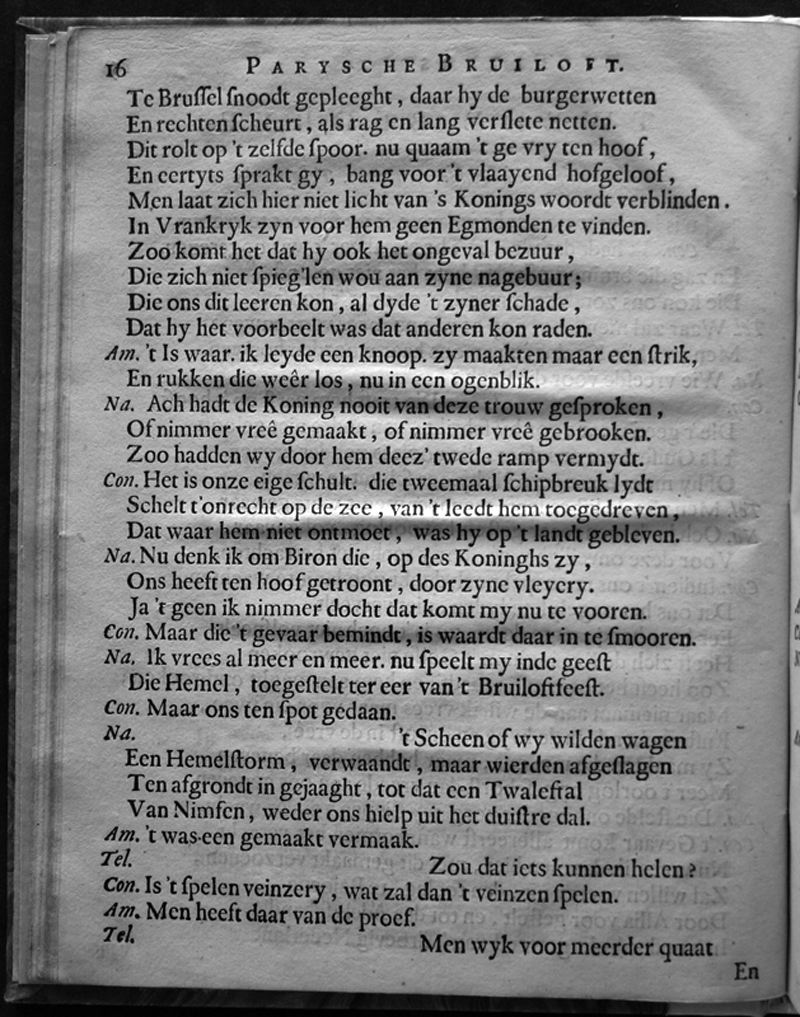 16 PARYSCHE BRUILOFT.
Te Brussel ſnoodt gepleeght, daar hy de burgerwetten
En rechten ſcheurt, als rag en lang verſlete netten.
Dit rolt op 't zelfde ſpoor. nu quaam 't ge vry ten hoof,
En eertyts ſprakt gy, bang voor 't vlaayend hofgeloof,
Men laat zich hier niet licht van 's Konings woordt verblinden.
In Vrankryk zyn voor hem geen Egmonden te vinden.
Zoo komt het dat hy ook het ongeval bezuur,
Die zich niet ſpieg'len wou aan zyne nagebuur;
Die ons dit leeren kon, al dyde 't zyner ſchade,
Dat hy het voorbeelt was dat anderen kon raden.
Am. 't Is waar. ik leyde een knoop. zy maakten maar een ſtrik,
En rukken die weêr los, nu in een ogenblik.
Na. Ach hadt de Koning nooit van deze trouw geſproken,
Of nimmer vreê gemaakt, of nimmer vreê gebrooken.
Zoo hadden wy door hem deez' twede ramp vermydt.
Con. Het is onze eige ſchult. die tweemaal ſchipbreuk lydt
Schelt t'onrecht op de zee, van 't leedt hem toegedreven,
Dat waar hem niet ontmoet, was hy op 't landt gebleven.
Na. Nu denk ik om Biron die, op des Koninghs zy,
Ons heeft ten hoof getroont, door zyne vleyery.
Ja 't geen ik nimmer docht dat komt my nu te vooren.
Con. Maar die 't gevaar bemindt, is waardt daar in te ſmooren.
Na. Ik vrees al meer en meer. nu ſpeelt my inde geeſt
Die Hemel, toegeſtelt ter eer van 't Bruiloftfeeſt.
Con. Maar ons ten ſpot gedaan.
Na. 't Scheen of wy wilden wagen
Een Hemelſtorm, verwaandt, maar wierden afgeſlagen
Ten afgrondt in gejaaght, tot dat een Twaleftal
Van Nimfen, weder ons hielp uit het duiſtre dal.
Am. 't was een gemaakt vermaak.
Tel. Zou dat iets kunnen helen?
Con. Is 't ſpelen veinzery, wat zal dan 't veinzen ſpelen.
Am. Men heeft daar van de proef.
Tel. Men wyk voor meerder quaat
En